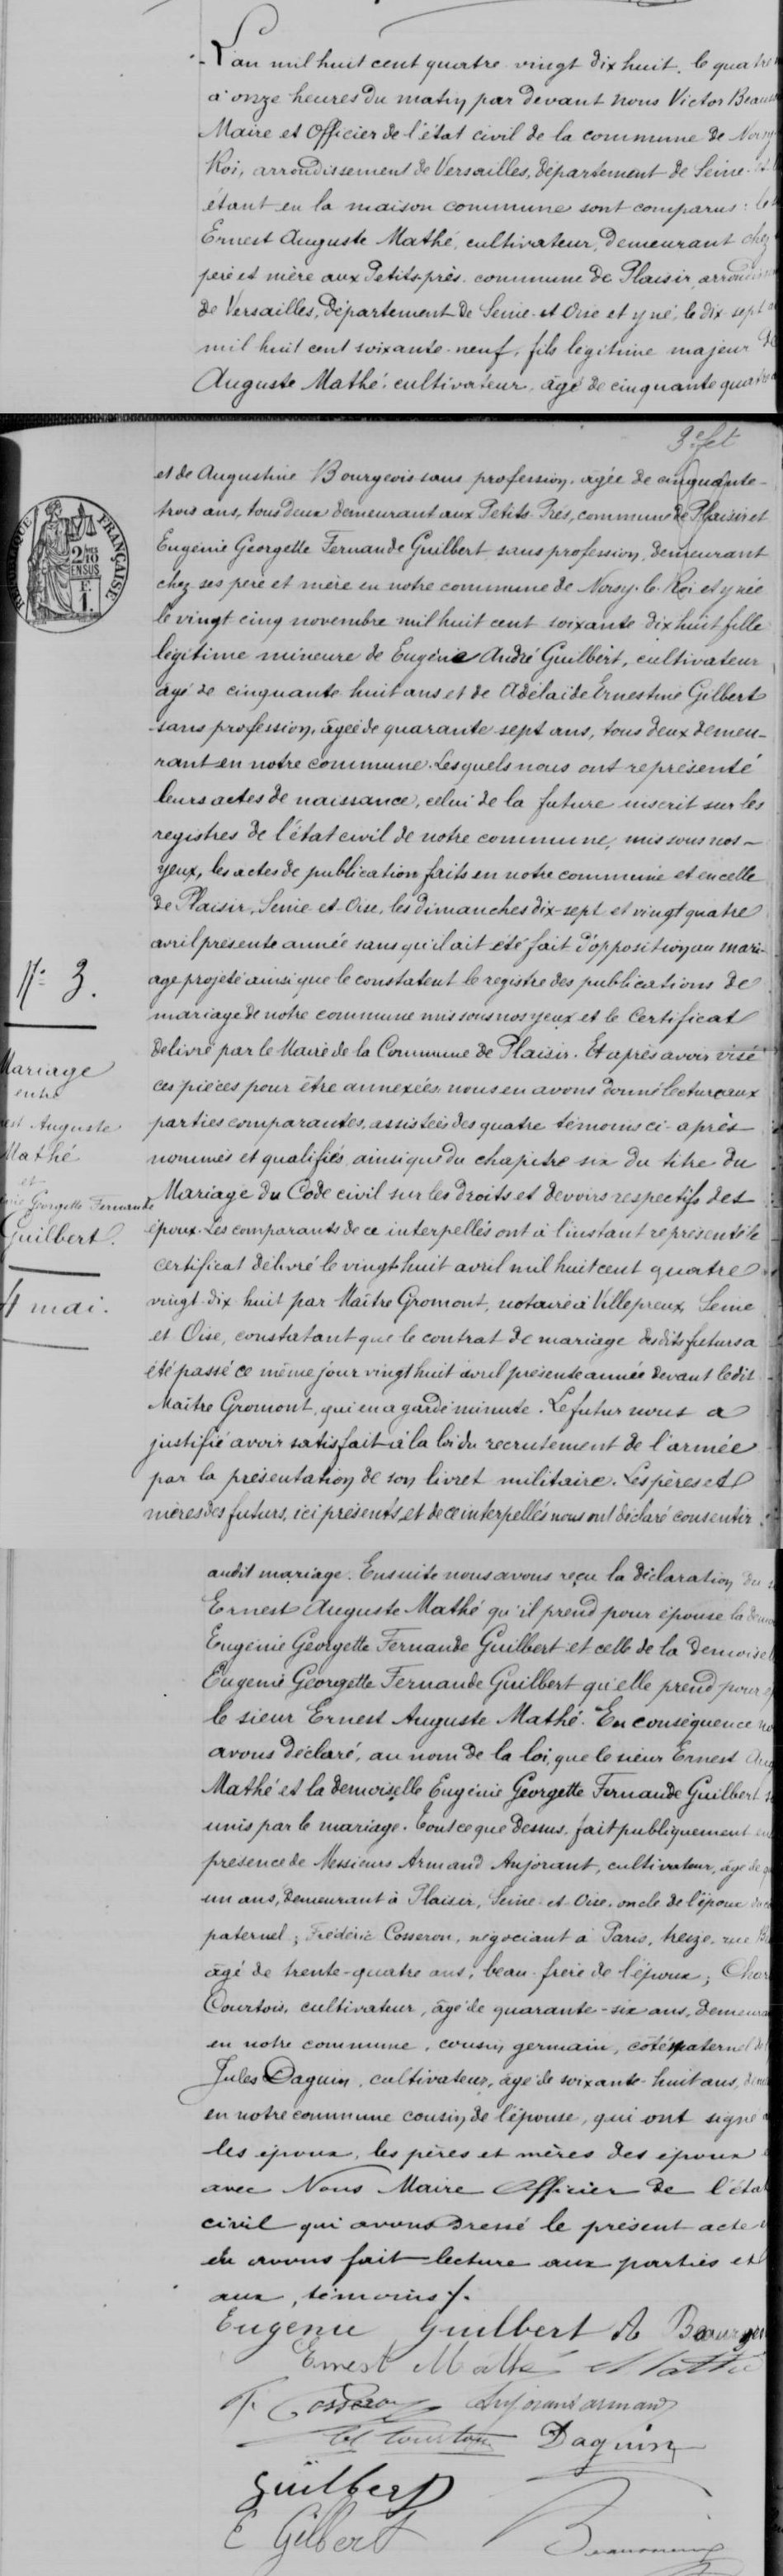 L'an mil huit cent quatre vingt dix huit, le quatre
à onze heures du matin par devant nous Victor
Maire et Officier de l'état civil de la commune de Noisy
Roi, arrondissement de Versailles, département de Seine et
étant en la maison commune sont comparus : le
Ernest Auguste Mathé, cultivateur, demeurant chez
père et mère aux Petits près, commune de Plaisir,
de Versailles, département de Seine et Oise et y né, le dix-sept
mil huit cent soixante neuf, fils légitime majeur de
Auguste Mathé, cultivateur, âgé de cinquante quatre
3e fet
et de Augustine Bourgeois sans profession, âgée de cinquante-
trois ans, tous deux demeurant aux Petits Prés, commune de Plaisir et
Eugénie Georgette Fernande Guilbert sans profession, demeurant
chez ses père et mère en notre commune de Noisy-le-Roi et y née
le vingt cinq novembre mil huit cent soixante dix huit fille
légitime mineure de Eugène André Guilbert, cultivateur
âgé de cinquante huit ans et de Adélaïde Ernestine Gilbert
sans profession, âgée de quarante sept ans, tous deux demeu-
rant en notre commune. Lesquels nous ont représenté
leurs actes de naissance, celui de la future inscrit sur les
registres de l'état civil de notre commune, mis sous nos
yeux, les actes de publication faits en notre commune et en celle
de Plaisir, Seine et Oise, les dimanches dix-sept et vingt quatre
avril présente année sans qu'il ait été fait d'opposition au mari-
age projeté ainsi que le constatent le registre des publications de
mariage de notre commune mis sous nos yeux et le Certificat
délivré par le Maire de la Commune de Plaisir. Et après avoir visé
ces pièces pour être annexées nous en avons donné lecture aux
parties comparantes, assistées des quatre témoins ci-après
nommés et qualifiés ainsi que du chapitre six du titre du
Mariage du Code civil sur les droits et devoirs respectifs des
époux. Les comparants de ce interpellés ont à l'instant représenté le
certificat délivré le vingt huit avril mil huit cent quatre
vingt-dix huit par Maître Gromont, notaire à Villepreux Seine
et Oise, constatant que le contrat de mariage desdits futurs a
été passé ce même jour vingt huit avril présente année devant ledit
Maître Gromont, qui en a gardé minute. Le futur nous a
justifié avoir satisfait à la loi du recrutement de l'armée
par la présentation de son livret militaire. Les pères et
mères des futurs, ici présents et de ce interpellés nous ont déclaré consentir
RÉPUBLIQUE FRANÇAISE
N° 3.
Mariage
entre
Auguste
Mathé
et
Georgette Fernande
Guilbert.
4 mai.
audit mariage. Ensuite nous avons reçu la déclaration du
Ernest Auguste Mathé qu'il prend pour épouse la
Eugénie Georgette Fernande Guilbert et celle de la demoiselle
Eugénie Georgette Fernande Guilbert qu'elle prend pour
le sieur Ernest Auguste Mathé. En conséquence
avons déclaré, au nom de la loi, que le sieur Ernest
Mathé et la demoiselle Eugénie Georgette Fernande Guilbert
unis par le mariage. Tout ce que dessus fait publiquement en
présence de Messieurs Armand Anjorant, cultivateur, âgé de
un ans, demeurant à Plaisir, Seine-et-Oise, oncle de l'époux
paternel ; Frédéric Cosseron, négociant à Paris, treize, rue
âgé de trente-quatre ans, beau-frère de l'époux ;
Courtois, cultivateur, âgé de quarante-six ans,
en notre commune, cousin germain, côté paternel
Jules Daguin, cultivateur, âgé de soixante-huit ans,
en notre commune cousin de l'épouse, qui ont signé
les époux, les pères et mères des époux
avec Nous Maire Officier de l'état
civil qui avons dressé le présent acte
en avons fait lecture aux parties et
aux témoins ./.
Eugénie Guilbert A Bourgeois
Ernest Mathé Mathé
F. Cosseron Anjorant armand
Courtois Daguin
Guilbert
E Gilbert